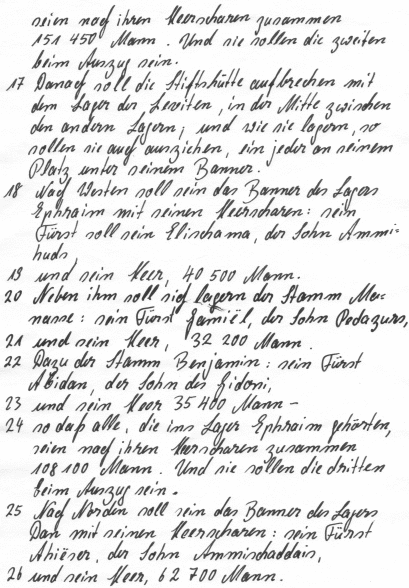 seien nach ihren Heerscharen zusammen
151 450 Mann. Und sie sollen die zweiten
beim Auszug sein.
17 Danach soll die Stiftshütte aufbrechen mit
dem Lager der Leviten, in der Mitte zwischen
den andern Lagern; und wie sie lagern, so
sollen sie auch ausziehen, ein jeder an seinem
Platz unter seinem Banner.
18 Nach Westen soll sein das Banner des Lagers
Ephraim mit seinen Heerscharen: sein
Fürst soll sein Elischama, der Sohn Ammi-
huds,
19 und sein Heer, 40 500 Mann.
20 Neben ihm soll sich lagern der Stamm Ma-
nasse: sein Fürst Gamiël, der Sohn Pedazurs,
21 und sein Heer, 32 200 Mann.
22 Dazu der Stamm Benjamin: sein Fürst
Abidan, der Sohn des Gidoni,
23 und sein Heer 35 400 Mann –
24 so daß alle, die ins Lager Ephraim gehörten,
seien nach ihren Heerscharen zusammen
108 100 Mann. Und sie sollen die dritten
beim Auszug sein.
25 Nach Norden soll sein das Banner des Lagers
Dan mit seinen Heerscharen: sein Fürst
Ahiëser, der Sohn Ammischaddais,
26 und sein Heer, 62 700 Mann.